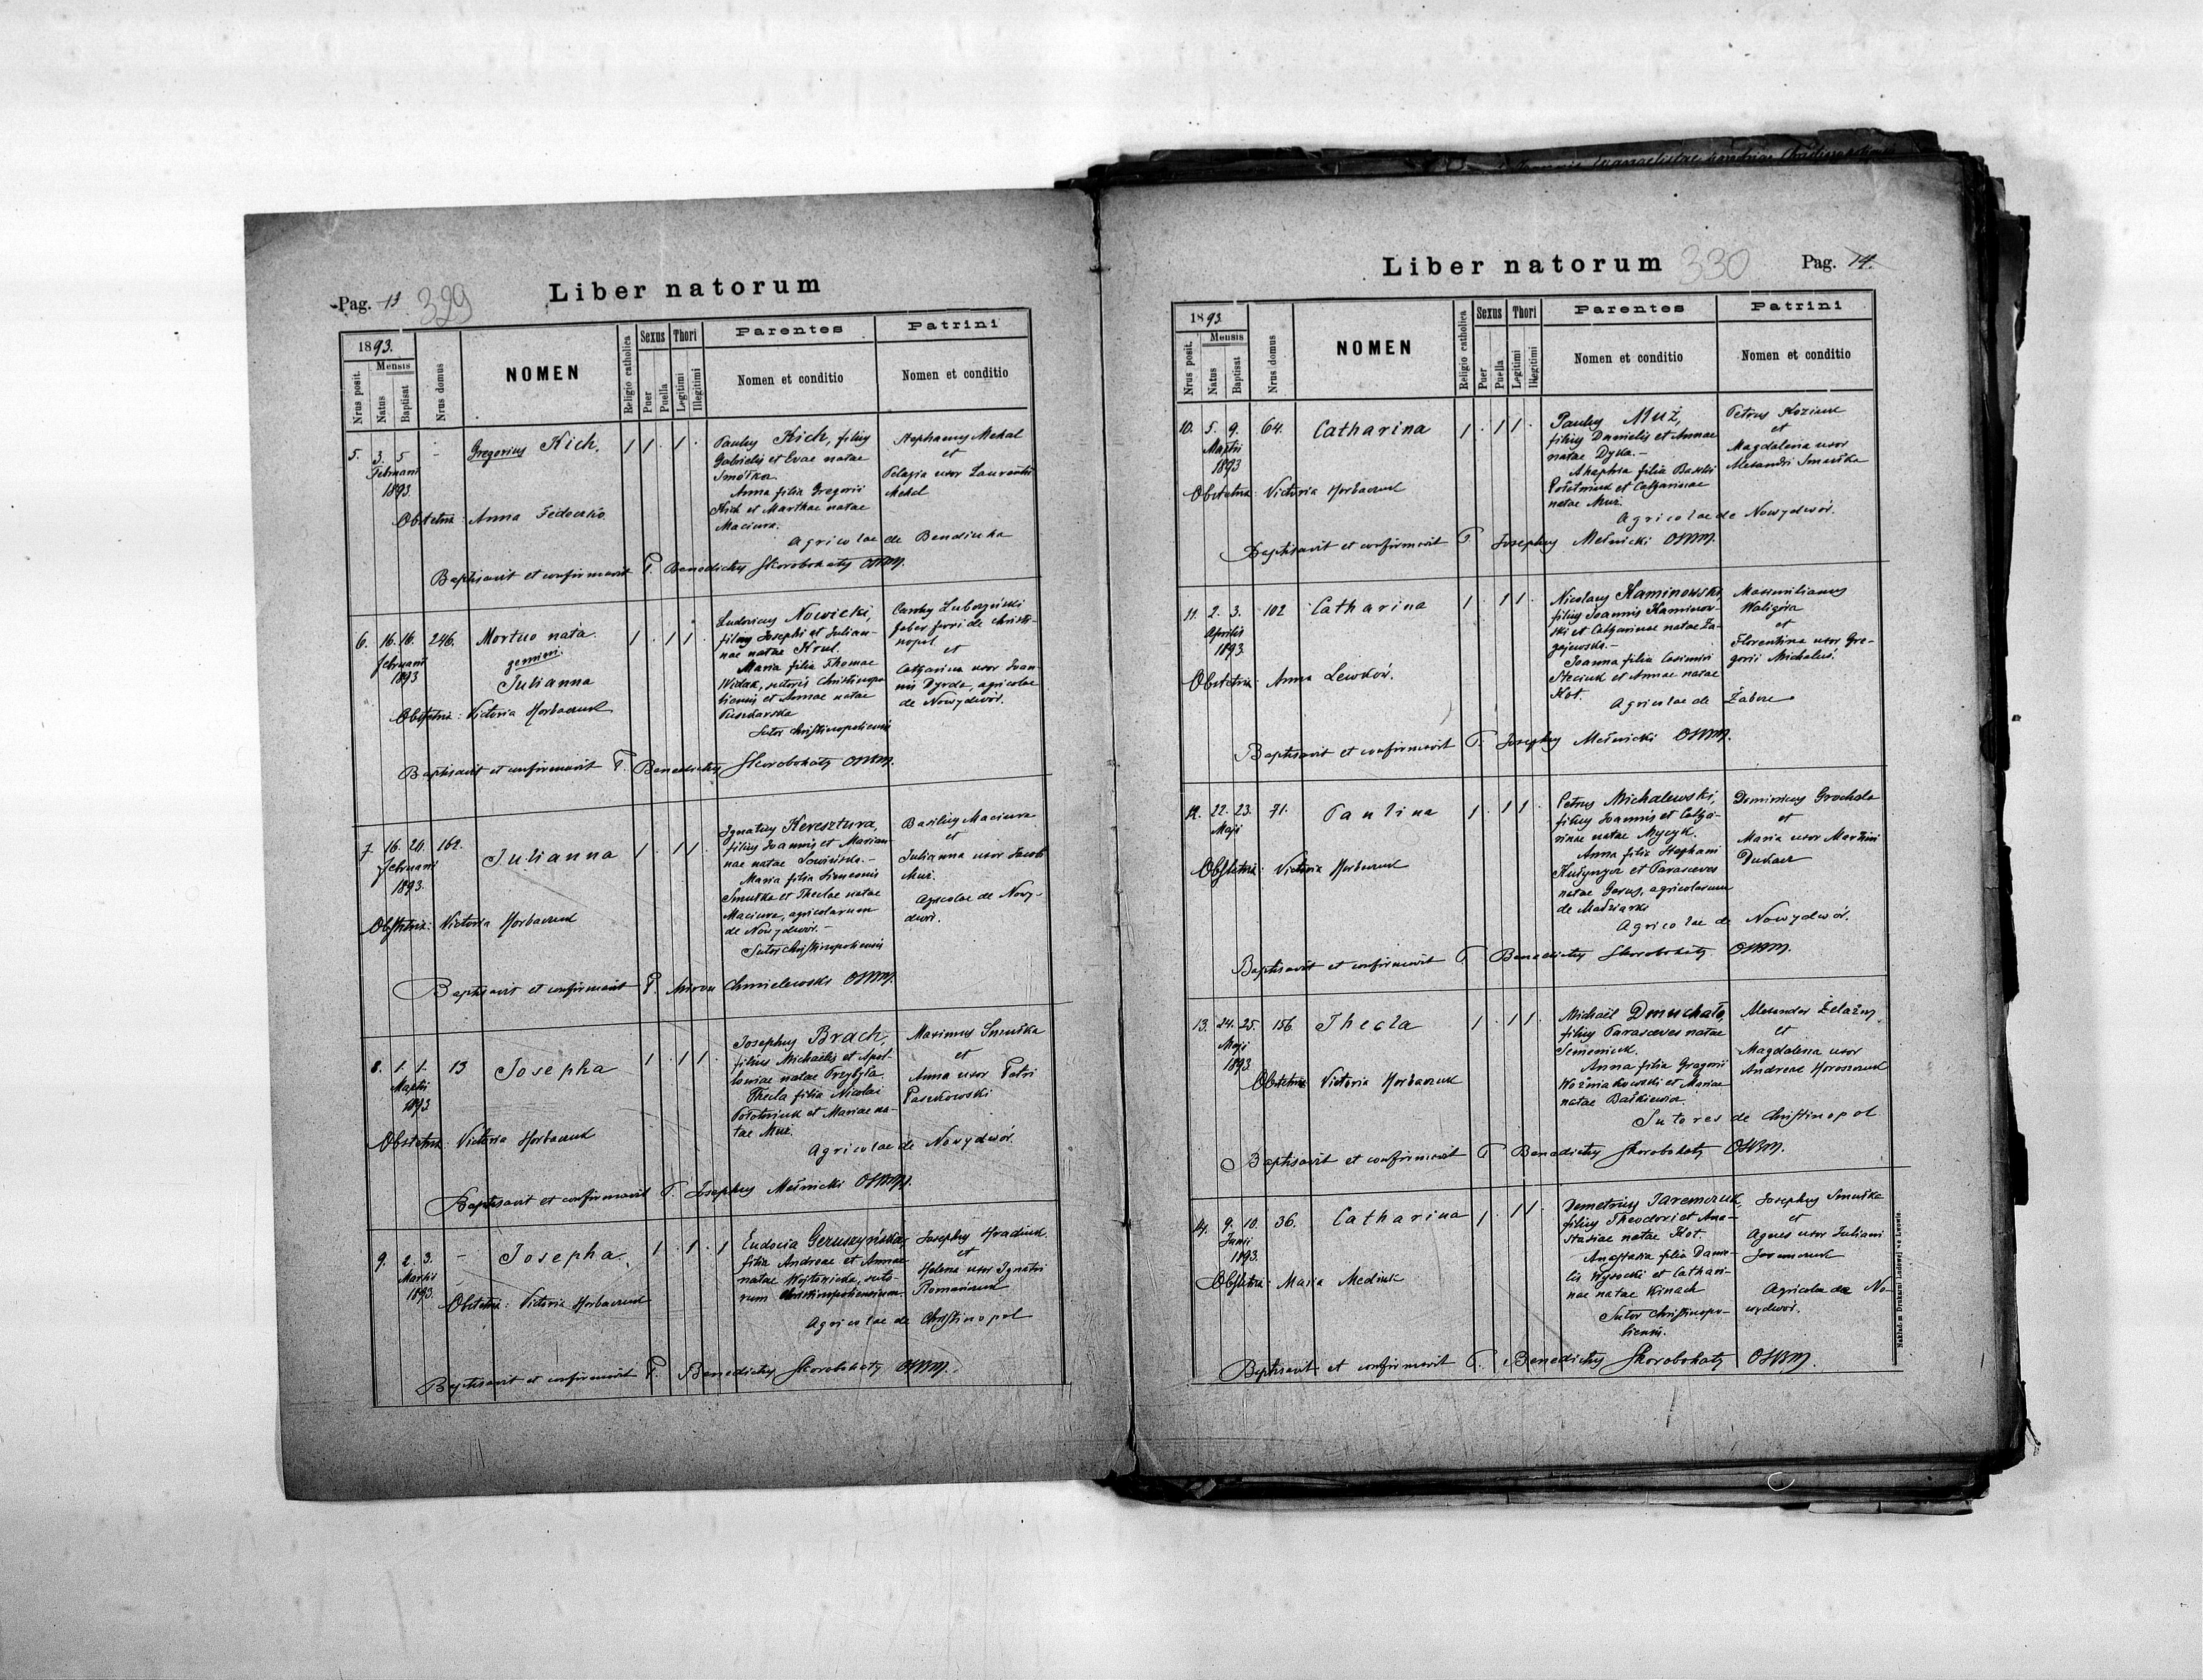 Pag. 13
329
Liber natorum
1893.
Mensis
Nrus posit.
Natus
Baptisat
Nrus domus
NOMEN
Religio catholica
Sexus
Puer
Puella
Thori
Legitimi
Illegitimi
Parentes
Nomen et conditio
Patrini
Nomen et conditio
5. 3. 5 - Gregorius Kich. 1 1 . 1 .
Februarii
1893.
Paulus Kich, filius
Gabrielis et Evae natae
Smółka.
Anna filia Gregorii
Kich et Marthae natae
Maciura.
Stephanus Mekal
et
Pelagia uxor Laurentii
Mekal
Obstetrix: Anna Fedeczko.
Agricolae de Bendiuha
Baptisavit et confirmavit P. Benedictus Skorobohaty OSBM.
6. 16. 16. 246. Mortuo nata. 1 . 1 1 .
februarii
1893
gemini.
Julianna
Ludovicus Nowicki,
filius Josephi et Julian-
nae natae Krul.
Maria filia Thomae
Widak, sutoris Christinopo-
liensis et Annae natae
Puszkarska
Sutor Christinopoliensis
faber ferri de Christi-
nopol
et
Catharina uxor Joan-
nis Dyrda, agricolae
de Nowydwór.
Obstetrix: Victoria Horbaczuk
Baptisavit et confirmavit P. Benedictus Skorobohaty OSBM.
7 16. 21. 162. Julianna 1 . 1 1 .
februarii
1893.
Ignatius Keresztura,
filius Joannis et Marian-
nae natae
Maria filia Simeonis
Smutka et Theclae natae
Maciura, agricolarum
de Nowydwór.-
Sutor Christinopoliensis
Basilius Maciura
et
Julianna uxor Jacobi
Muż.
Agricolae de Nowy-
dwór.
Obstetrix: Victoria Horbaczuk
Baptisavit et confirmavit P. Miron Chmielewski OSBM.
8. 1. 1. 13 Josepha 1 . 1 1 .
Martii
1893
Josephus Brach,
filius Michaelis et Apol-
loniae natae Przybyła.
Thecla filia Nicolai
Połotniuk et Mariae na-
tae Muż.
Maximus Smuszka
et
Anna uxor Petri
Paszkowski
Obstetrix: Victoria Horbaczuk
Agricolae de Nowydwór.
Baptisavit et confirmavit P. Josephus Melnicki OSBM.
9. 2. 3. - Josepha. 1 . 1 . 1
Martii
1893.
Eudocia Geruszyńska,
filia Andreae et Annae
natae Wojtowicka, suto-
rum Christinopoliensium.
Josephus Hradiuk.
et
Helena uxor Ignatii
Romaniuk
Obstetrix: Victoria Horbaczuk
Agricolae de Christinopol
Baptisavit et confirmavit P. Benedictus Skorobohaty OSBM.
Liber natorum
330
Pag. 14.
1893
Mensis
Nrus posit.
Natus
Baptisat
Nrus domus
NOMEN
Religio catholica
Sexus
Puer
Puella
Thori
Legitimi
Illegitimi
Parentes
Nomen et conditio
Patrini
Nomen et conditio
10. 5. 9. 64. Catharina 1 . 1 1 .
Martii
1893
Paulus Muż,
filius Danielis et Annae
natae Dyka.-
Ahaphia filia Basilii
Połotniuk et Catharinae
natae Muż.
Petrus Koziuk
et
Magdalena uxor
Alexandri Smuszka
Obstetrix: Victoria Horbaczuk
Agricolae de Nowydwór.
Baptisavit et confirmavit P. Josephus Melnicki OSBM.
11. 2. 3. 102 Catharina 1 . 1 1 .
Aprilis
1893
Nicolaus Kaminowski,
filius Joannis Kaminow-
ski et Catharinae natae Za-
gajewska.-
Joanna filia Casimiri
Steciuk et Annae natae
Kot.
Maximilianus
Waligóra
et
Florentina uxor Gre-
gorii Michaluś.
Obstetrix: Anna Lewków.
Agricolae de Zabuże
Baptisavit et confirmavit P. Josephus Melnicki OSBM.
12. 22. 23. 71. Paulina 1 . 1 1 .
Maji
Petrus Michalewski,
filius Joannis et Catha-
rinae natae
Anna filia Stephani
et Parasceves
natae Gerus, agricolarum
de Madziarki
Dominicus Grochola
et
Maria uxor Martini
Obstetrix: Victoria Horbaczuk
Agricolae de Nowydwór.
Baptisavit et confirmavit P. Benedictus Skorobohaty OSBM.
13. 24. 25. 156. Thecla 1 . 1 1 .
Maji
1893
Michaël Dmuchało,
filius Parasceves natae
Semeniuk.
Anna filia Gregorii
Woźniakowski et Mariae
natae Baśkiewicz.
Alexander Żelazny
et
Magdalena uxor
Andreae Horoszczuk
Obstetrix: Victoria Horbaczuk
Sutores de Christinopol
Baptisavit et confirmavit P. Benedictus Skorobohaty OSBM.
14. 9. 10. 36. Catharina 1 . 1 1 .
Junii
1893.
Demetrius Jaremczuk,
filius Theodori et Ana-
stasiae natae Kot.
Anastasia filia Danie-
lis Wysocki et Cathari-
nae natae Kinach
Sutor Christinopo-
liensis.
Josephus Smuszka
et
Agnes uxor Juliani
Jaremczuk
Agricolae de No-
wydwór.
Obstetrix: Maria Mediuk
Baptisavit et confirmavit P. Benedictus Skorobohaty OSBM.
Nakładem Drukarni Ludowej we Lwowie.